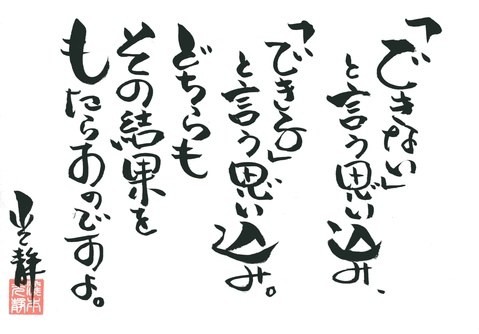 「できない」
と言う思い込み、
「できる」
と言う思い込み。
どちらも
その結果を
もたらすのですよ。